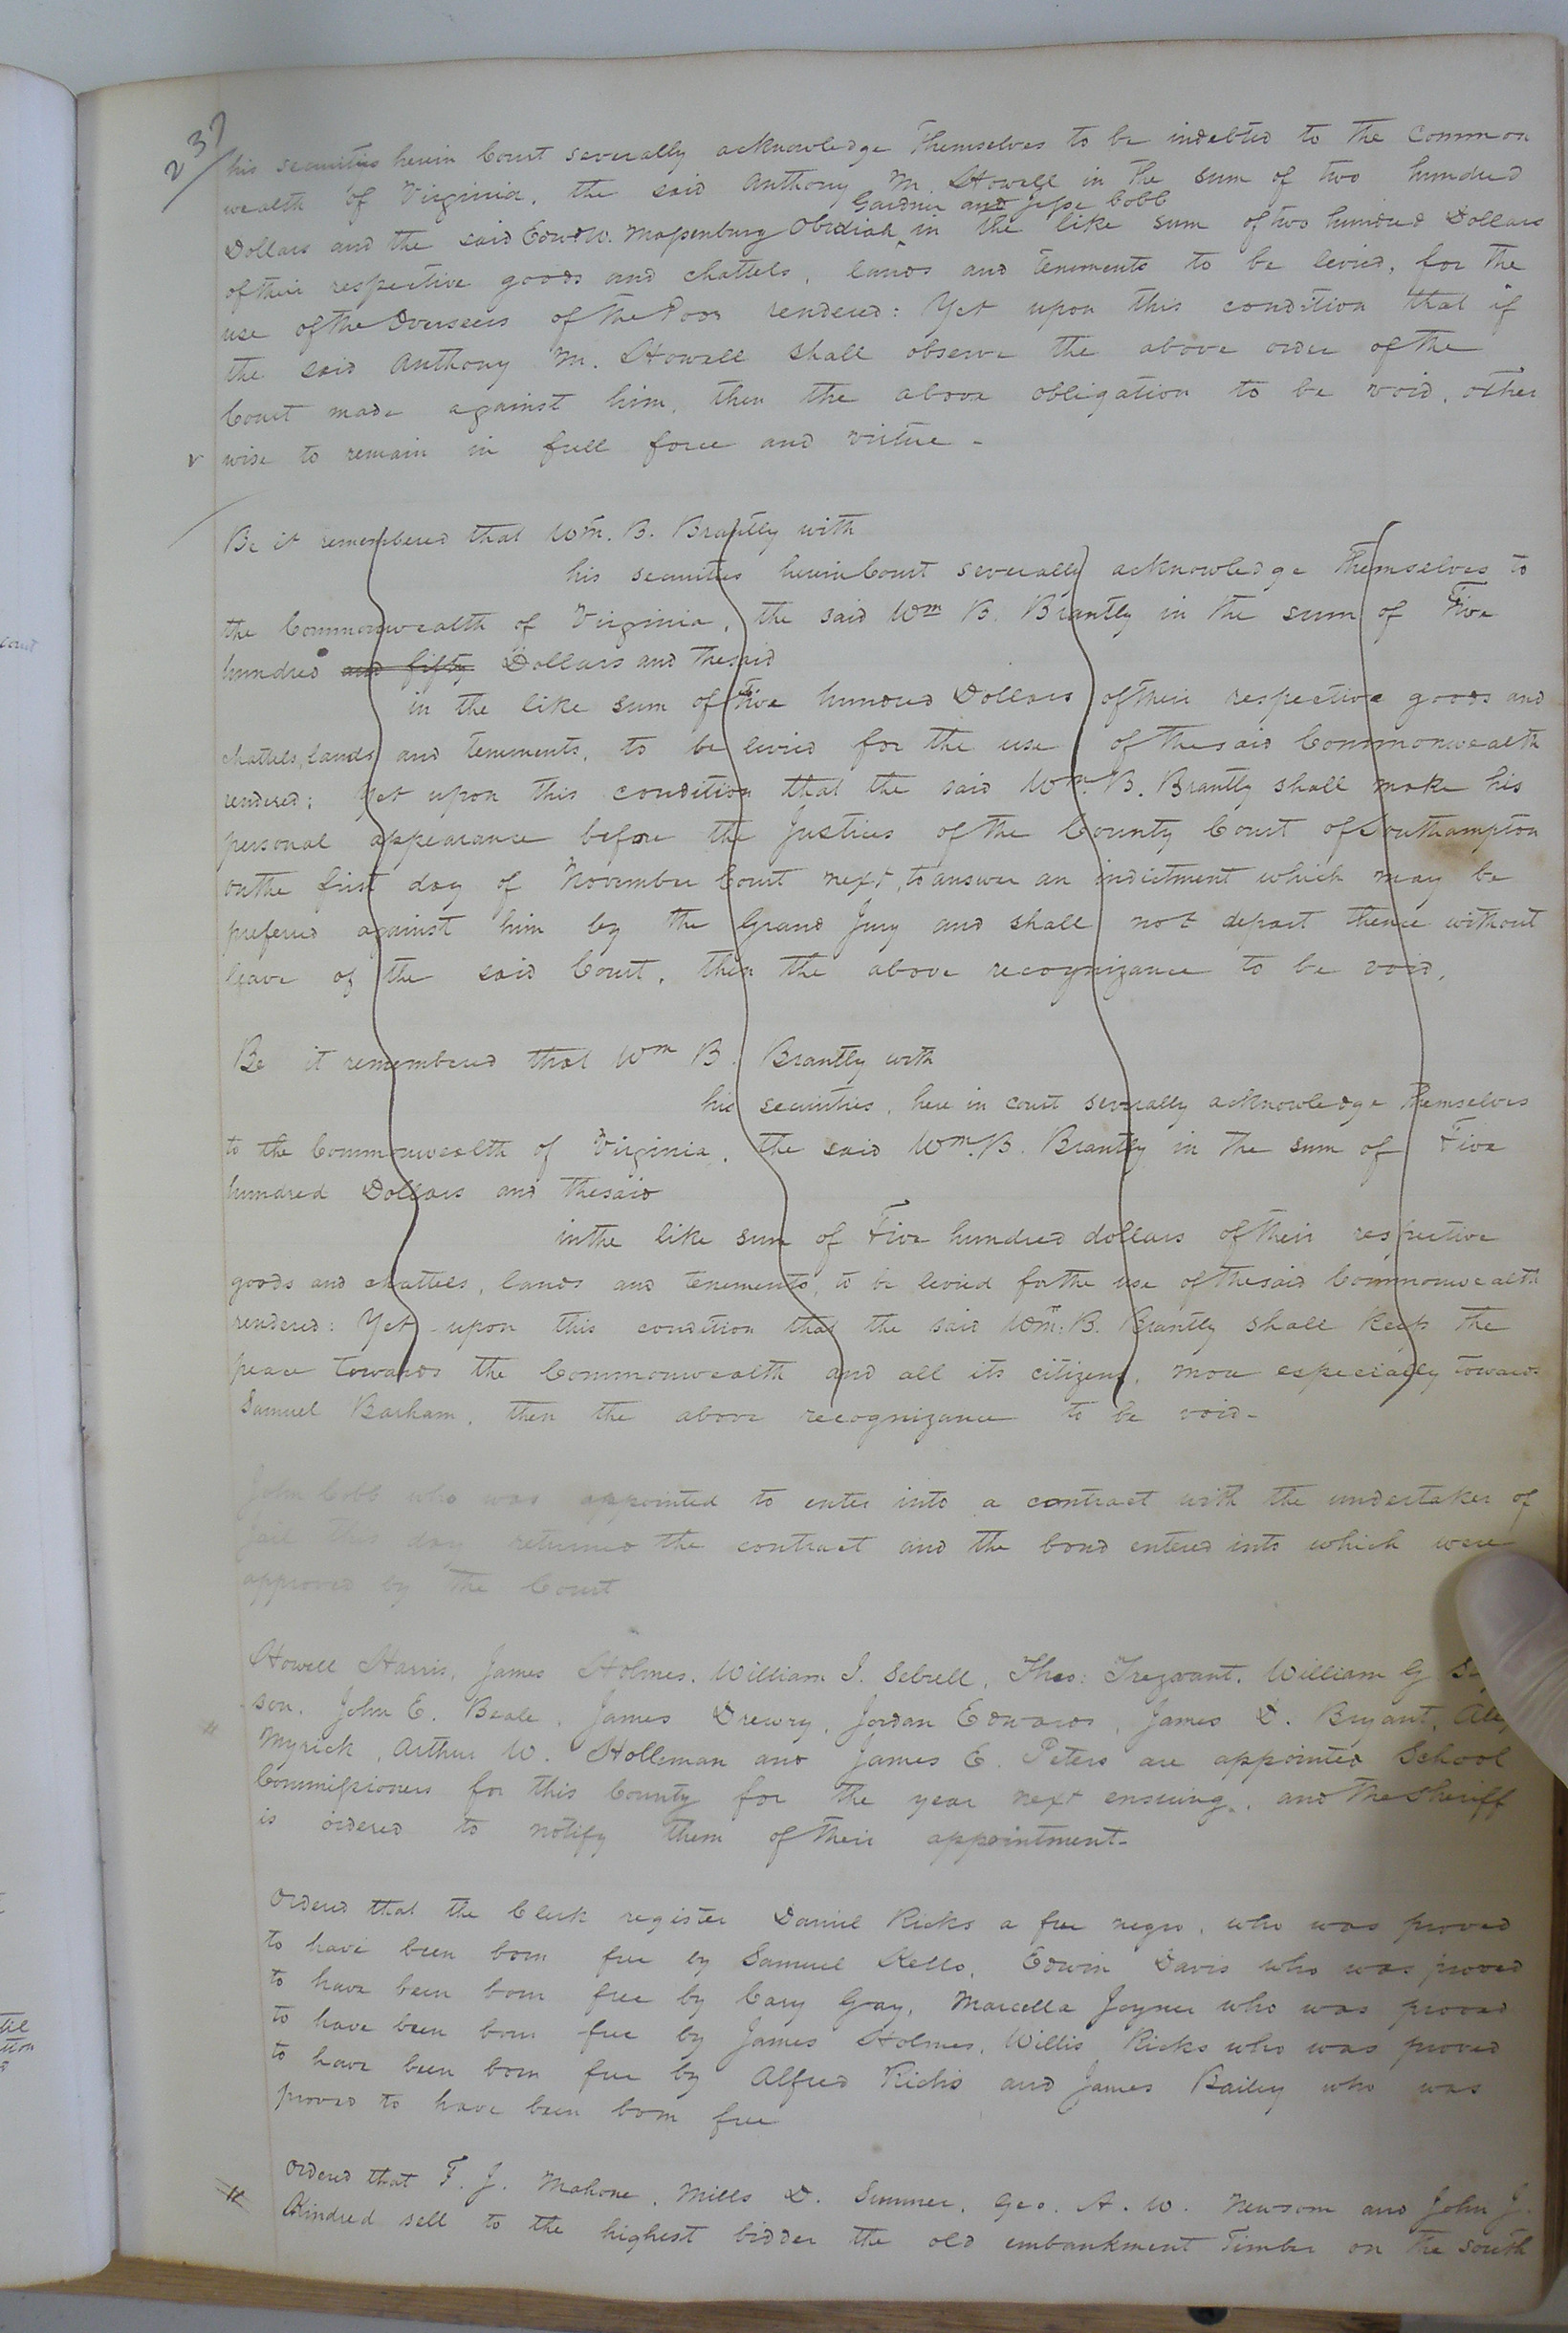 237
his securities herein Court severally acknowledge themselves to be indebted to the Common
wealth of Virginia, the said Anthony M. Howell in the sum of two hundred
Gardner and Jesse Cobb
Dollars and the said Edwd W. Massenburg Obediah ^ in the like sum of two hundred Dollars
of their respective goods and chattels, lands and tenements to be levied, for the
use of the Overseers of the Poor rendered: Yet upon this condition that if
the said Anthony M. Howell shall observe the above order of the
Court made against him, then the above obligation to be void, other
wise to remain in full force and virtue -
Be it remembered that Wm. B. Brantly with
his securities herein Court severally acknowledge themselves to
the Commonwealth of Virginia, the said Wm B. Brantly in the sum of Five
hundred and fifty Dollars and the said
in the like sum of Five hundred Dollars of their respective goods and
chattels, lands and tenements, to be levied for the use of the said Commonwealth
rendered: Yet upon this condition that the said Wm. B. Brantly shall make his
personal appearance before the Justices of the County Court of Southampton
on the first day of November Court next, to answer an indictment which may be
preferred against him by the Grand Jury and shall not depart thence without
leave of the said Court, then the above recognizance to be void,
Be it remembered that Wm B. Brantly with
his securities, here in court severally acknowledge themselves
to the Commonwealth of Virginia, the said Wm. B. Brantly in the sum of Five
hundred Dollars and the said
in the like sum of Five hundred dollars of their respective
goods and chattels, lands and tenements, to be levied for the use of the said Commonwealth
rendered: Yet upon this condition that the said Wm. B. Brantly shall keep the
peace towards the Commonwealth and all its citizens, more especially towards
Samuel Barham, then the above recognizance to be void-
John Cobb who was appointed to enter into a contract with the undertaker of
Jail this day returned the contract and the bond entered into which were
approved by the Court
Howell Harris, James Holmes, William J. Sebrell, Thos: Trezvant, William G
son, John E. Beale, James Drewry, Jordan Edwards, James D. Bryant,
Myrick, Arthur W. Holleman and James E. Peters are appointed School
Commissioners for this County for the year next ensuing, and the Sheriff
is ordered to notify them of their appointment-
Ordered that the Clerk register Daniel Ricks a free negro, who was proved
to have been born free by Samuel Kello, Edwin Davis who was proved
to have been born free by Cary Gray, Marcella Joyner who was proved
to have been born free by James Holmes, Willis Ricks who was proved
to have been born free by Alfred Ricks and James Bailey who was
proved to have been born free
Ordered that F. J. Mahone, Mills D. Sumner, Geo. A. W. Newsom and John J.
Kindred sell to the highest bidder the old embankment Timber on the south